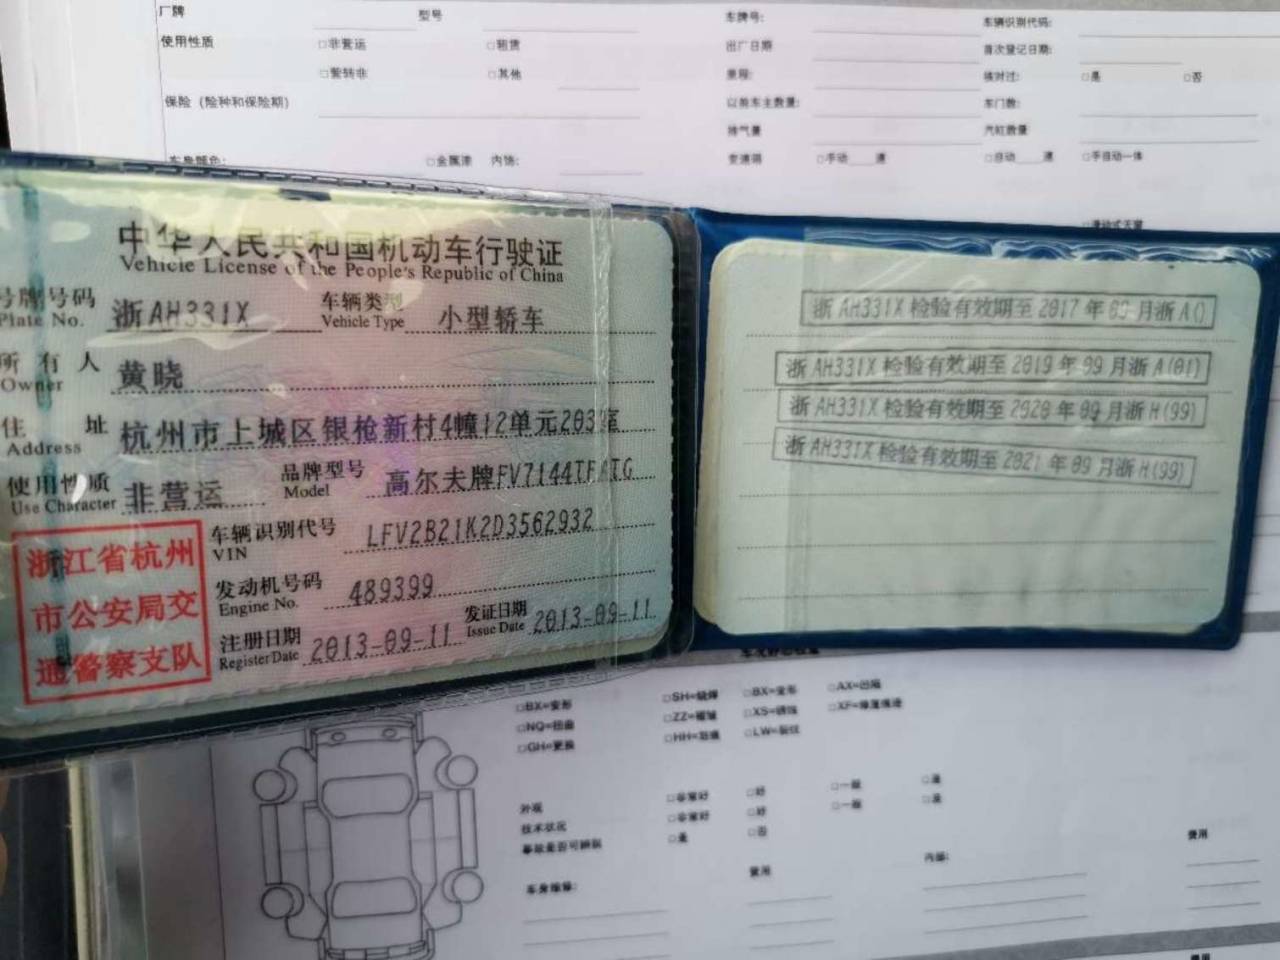 厂牌 型号 车牌号: 车辆识别代码:
使用性质 □非营运 □租赁 出厂日期 首次登记日期:
□营转非 □其他 里程: 核对过: □是 □否
保险（险种和保险期） 以前车主数量: 车门数:
排气量 汽缸数量
车身颜色: □金属漆 内饰: 变速箱 □手动 速 □自动 速 □手自动一体
中华人民共和国机动车行驶证
Vehicle License of the People's Republic of China
号牌号码 浙AH331X 车辆类型 小型轿车
Plate No. Vehicle Type
所有人 黄晓
Owner
住址 杭州市上城区银枪新村4幢12单元203室
Address
使用性质 非营运 品牌型号 高尔夫牌FV7144TFATG
Use Character Model
车辆识别代号 LFV2B21K2D3562932
VIN
发动机号码 489399
Engine No.
注册日期 2013-09-11 发证日期 2013-09-11
Register Date Issue Date
浙江省杭州
市公安局交
通警察支队
浙AH331X检验有效期至2017年09月浙A()
浙AH331X检验有效期至2019年09月浙A(01)
浙AH331X检验有效期至2020年09月浙H(99)
浙AH331X检验有效期至2021年09月浙H(99)
□BX=变形 □SH=烧焊 □BX=变形 □AX=凹陷
□NQ=扭曲 □ZZ=褶皱 □XS=锈蚀 □XF=修复痕迹
□GH=更换 □HH=划痕 □LW=裂纹
外观 □非常好 □好 □一般 □差
技术状况 □非常好 □好 □一般 □差
事故是否可辨别 □是 □否
车身维修: 费用 内部: 费用
费用